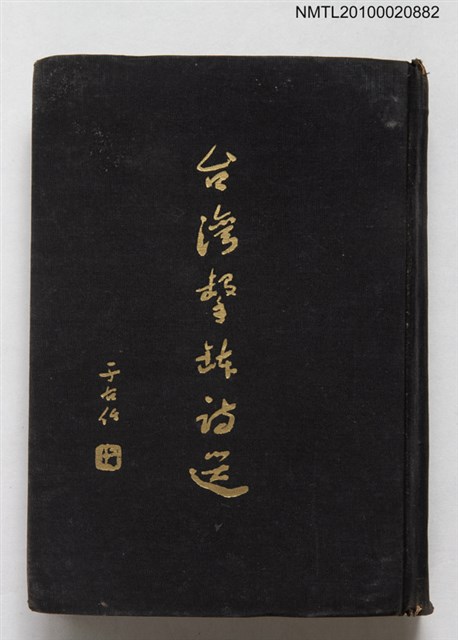 NMTL20100020882
台灣擊鉢詩選
于右任